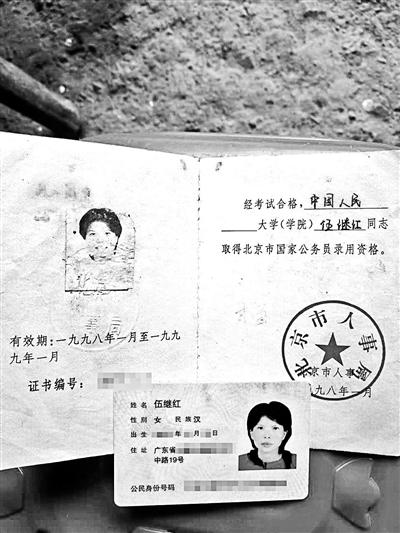 有效期：一九九八年一月至一九九
九年一月
证书编号：
经考试合格，中国人民
大学(学院) 伍继红 同志
取得北京市国家公务员录用资格。
北京市人事局
京市人事
九八年一月
姓名 伍继红
性别 女 民族 汉
出生 年 月 日
住址 广东省
中路19号
公民身份号码